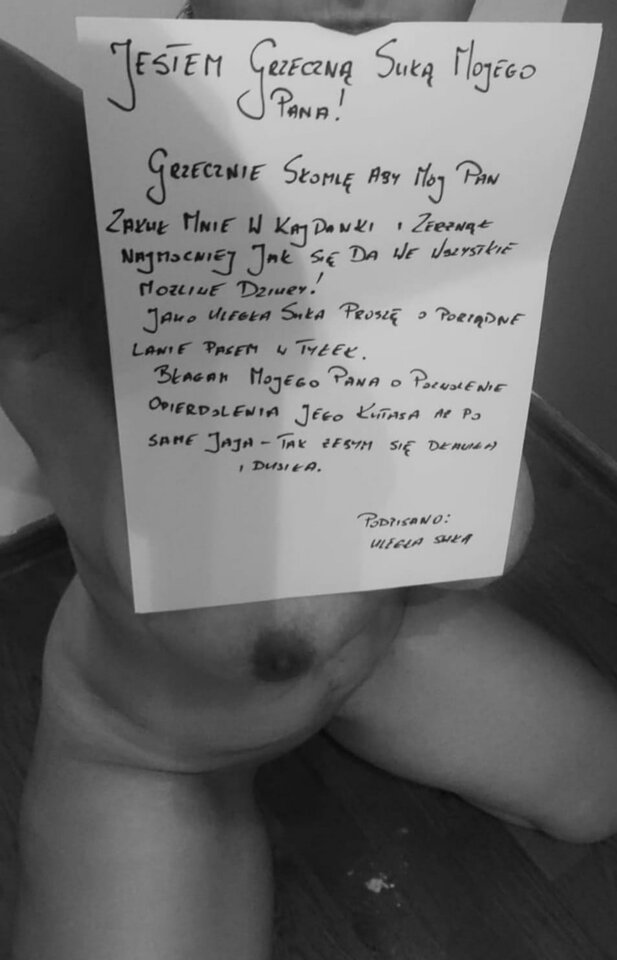 JESTEM GRZECZNĄ SUKĄ MOJEGO
PANA!
GRZECZNIE SKOMLĘ ABY MOJ PAN
ZAKUŁ MNIE W KAJDANKI I ZERZNĄŁ
NAJMOCNIEJ JAK SIĘ DA WE WSZYSTKIE
MOŻLIWE DZIURY!
JAKO ULEGŁA SUKA PROSZĘ O PORZĄDNE
LANIE PASEM W TYŁEK.
BŁAGAM MOJEGO PANA O POZWOLENIE
OPIERDOLENIA JEGO KUTASA AŻ PO
SAME JAJA - TAK ŻEBYM SIĘ DŁAWIŁA
I DUSIŁA.
PODPISANO:
ULEGŁA SUKA